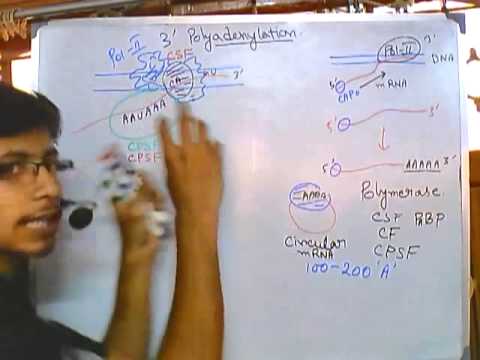 3' Polyadenylation
Pol-II
CSF
3'
AAUAAA
CPSF
CPSF
3'
Pol-II
DNA
5'
CAP
mRNA
5'
3'
5'
AAAAA 3'
AAAA
Circular
mRNA
100-200 'A'
Polymerase
CSF PABP
CF
CPSF